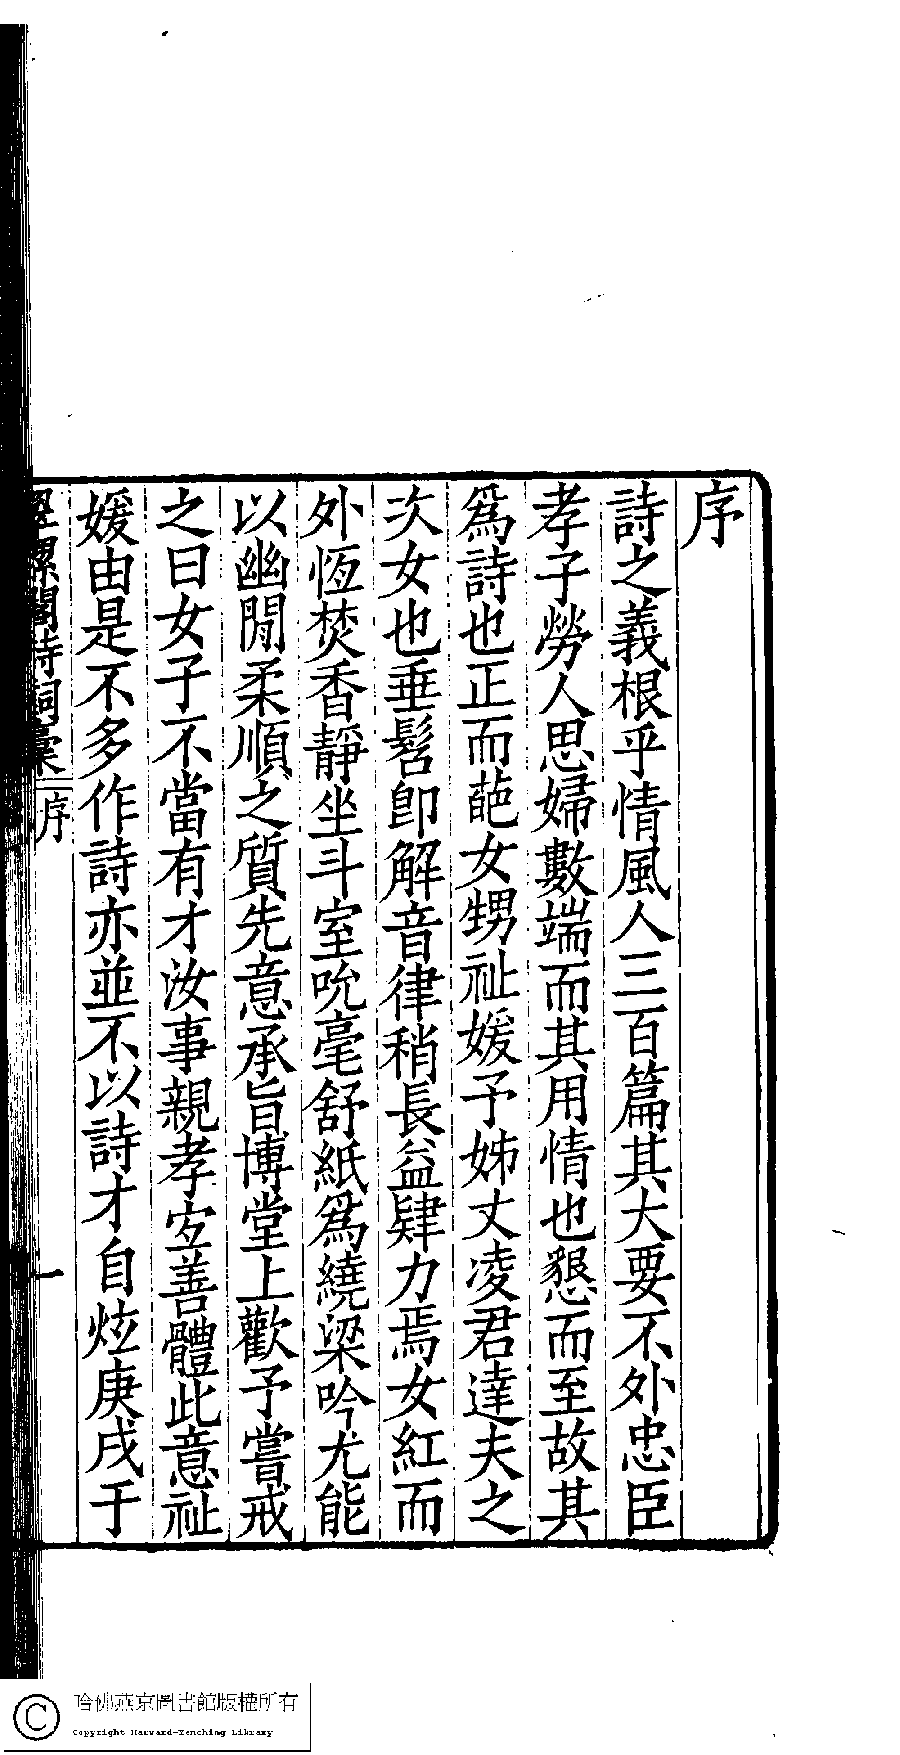 序
詩之義根乎情風人三百篇其大要不外忠臣
孝子勞人思婦數端而其用情也懇而至故其
爲詩也正而葩女甥祉媛予姊丈凌君達夫之
次女也垂髫卽解音律稍長益肄力焉女紅而
外恆焚香靜坐斗室吮毫舒紙爲繞梁吟尤能
以幽閒柔順之質先意承旨博堂上歡予嘗戒
之曰女子不當有才汝事親孝宐善體此意祉
媛由是不多作詩亦並不以詩才自炫庚戌于
翠螺閣詩詞稾 序 一
哈佛燕京圖書館版權所有
Copyright Harvard-Yenching Library